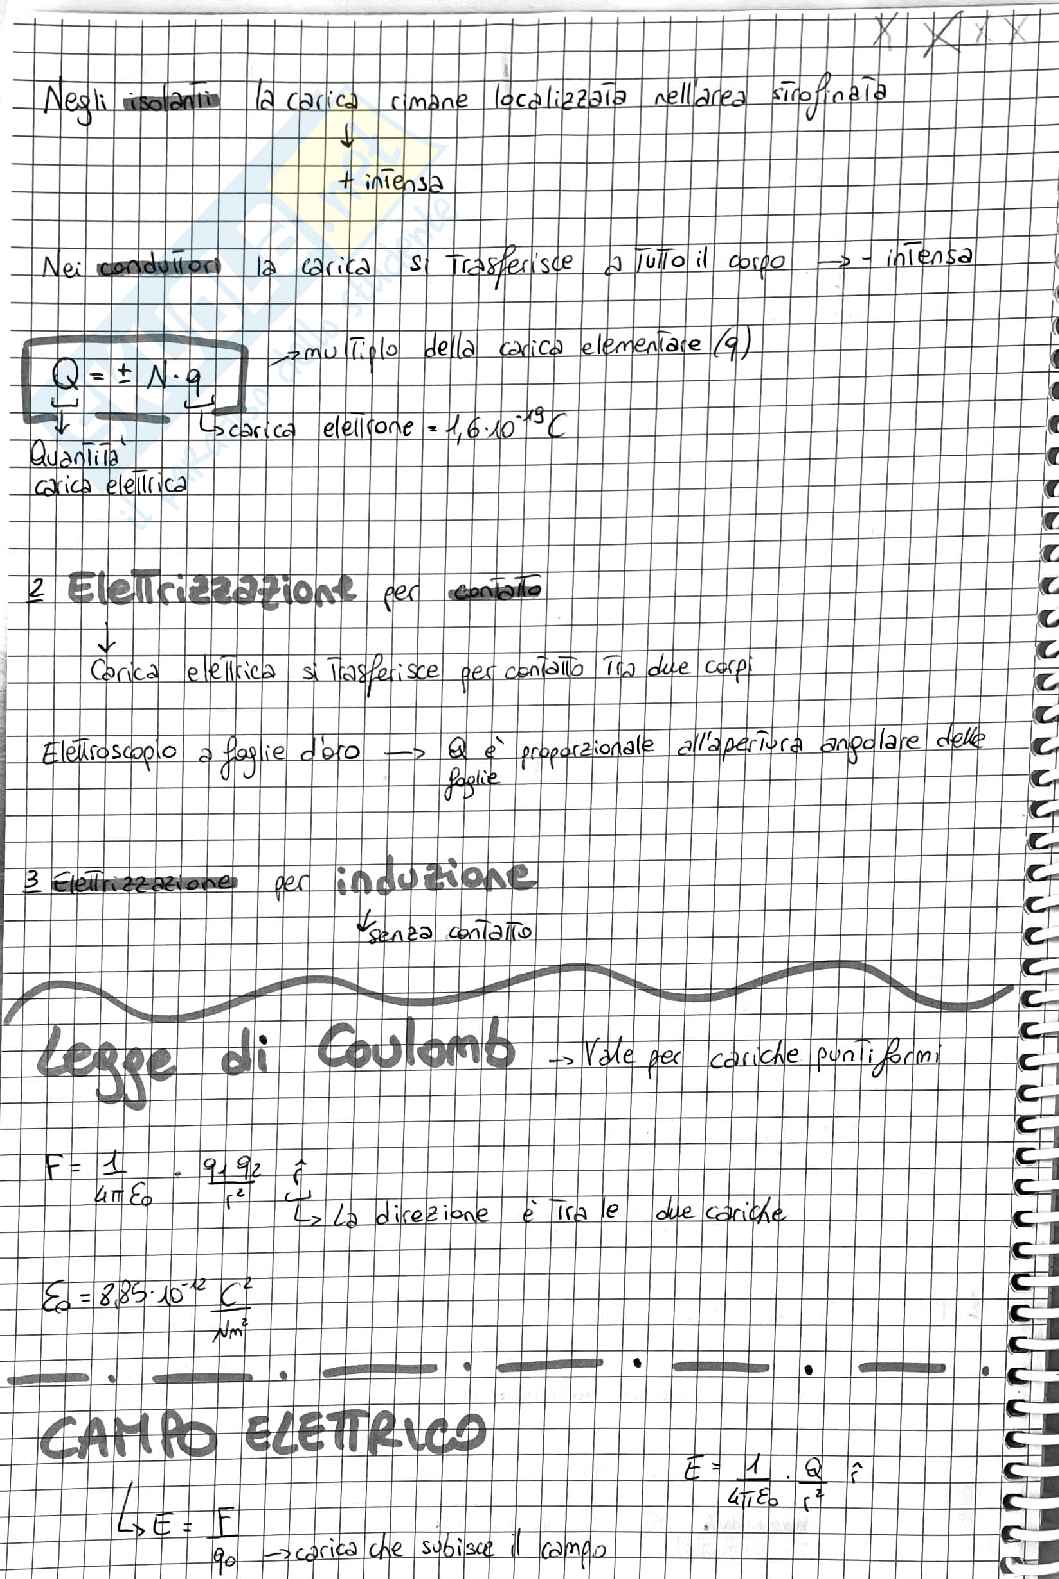 Negli isolanti la carica rimane localizzata nell'area strofinata
↓
+ intensa
Nei conduttori la carica si trasferisce a tutto il corpo → - intensa
Q = ± N · q → multiplo della carica elementare (q)
↳ carica elettrone = 1,6·10⁻¹⁹ C
↓
Quantità
carica elettrica
2 Elettrizzazione per contatto
↓
Carica elettrica si trasferisce per contatto tra due corpi
Elettroscopio a foglie d'oro → Q è proporzionale all'apertura angolare delle
foglie
3 Elettrizzazione per induzione
↓ senza contatto
Legge di Coulomb → Vale per cariche puntiformi
F = 1/4πε₀ · q₁ q₂/r² r̂
↳ la direzione è tra le due cariche
ε₀ = 8,85·10⁻¹² C²/Nm²
CAMPO ELETTRICO
E = 1/4πε₀ · Q/r² r̂
↳ E = F/q₀ → carica che subisce il campo